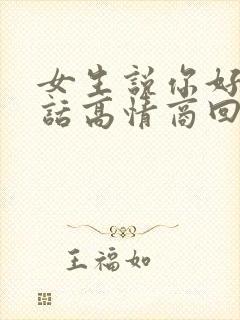 女生說你好
話高情商回
王福如